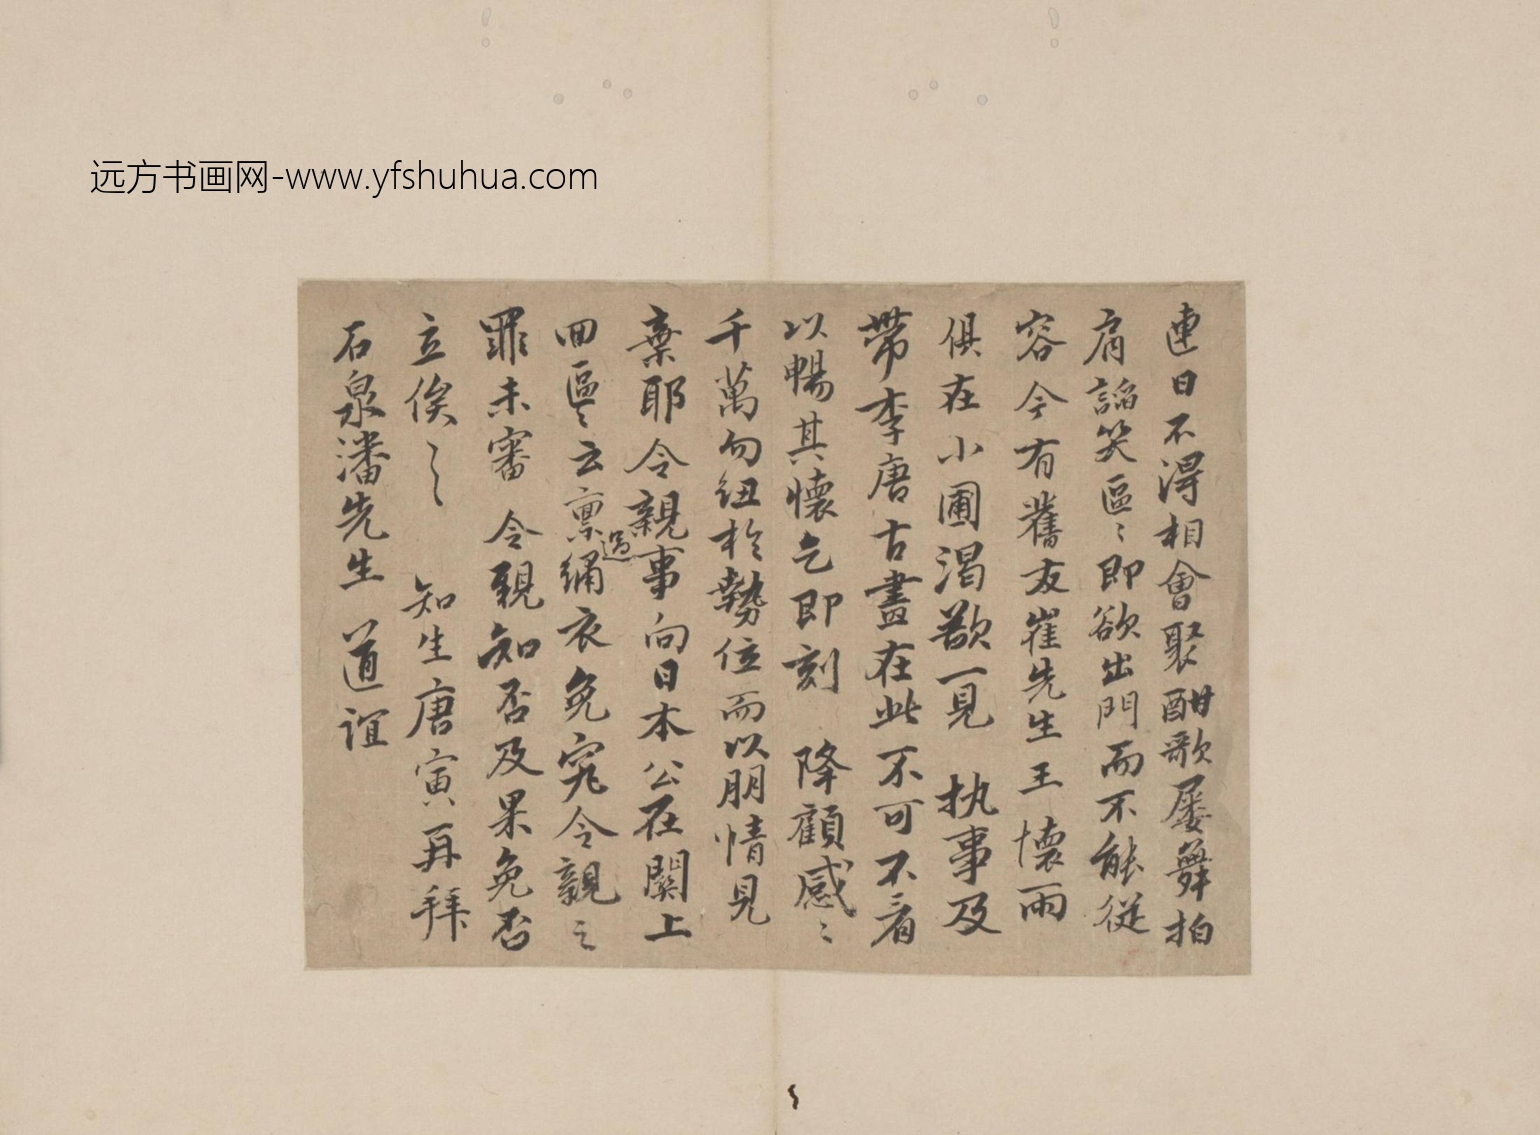 远方书画网-www.yfshuhua.com
連日不得相會聚酣歌屡舞拍
肩謟笑區〻即欲出門而不能從
容今有舊友崔先生王懷雨
俱在小圃渴欲一見 执事及
帶李唐古畫在此不可不看
以暢其懷乞即刻 降顧感〻
千萬勿紐於勢位而以朋情見
棄耶令親事向日本公在關上
回區〻云稟過緟衣免究令親之
罪未審 令親知否及果免否
立俟〻〻 知生唐寅再拜
石泉潘先生 道誼